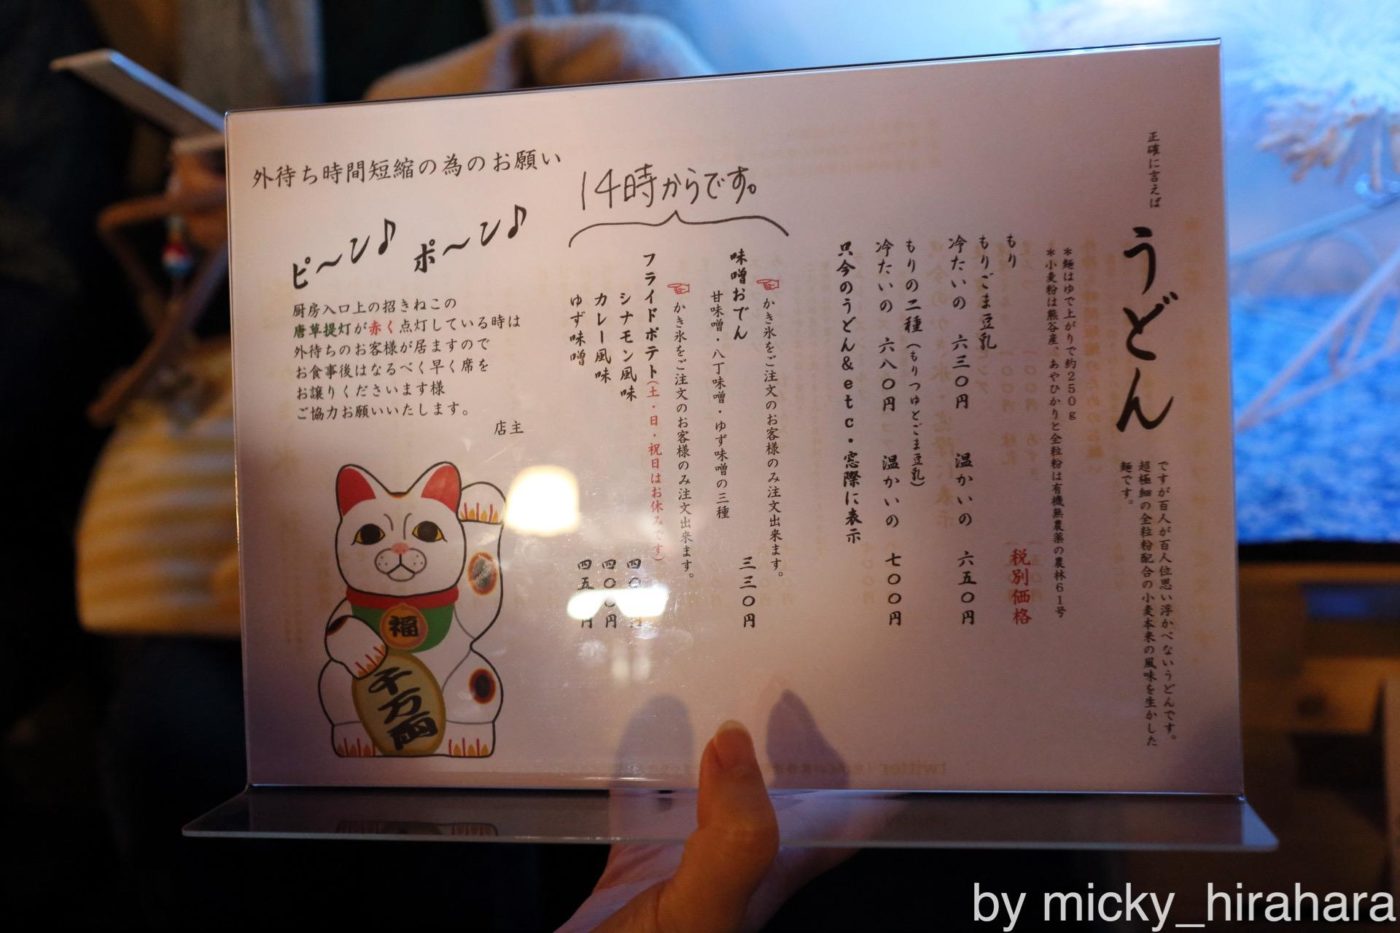 正確に言えば
うどん
ですが百人が百人位思い浮かべないうどんです。
超極細の全粒粉配合の小麦本来の風味を生かした
麺です。
*麺はゆで上がりで約250g
*小麦粉は熊谷産、あやひかりと全粒粉は有機無農薬の農林61号
税別価格
もり
冷たいの 六三〇円 温かいの 六五〇円
もりごま豆乳
冷たいの 六八〇円 温かいの 七〇〇円
もりの二種(もりつゆとごま豆乳)
只今のうどん&etc・窓際に表示
14時からです。
☜かき氷をご注文のお客様のみ注文出来ます。
味噌おでん 三三〇円
甘味噌・八丁味噌・ゆず味噌の三種
☜かき氷をご注文のお客様のみ注文出来ます。
フライドポテト(土・日・祝日はお休みです)
シナモン風味
カレー風味 四〇〇円
ゆず味噌 四五〇円
外待ち時間短縮の為のお願い
ピ〜ン♪ ポ〜ン♪
厨房入口上の招きねこの
唐草提灯が赤く点灯している時は
外待ちのお客様が居ますので
お食事後はなるべく早く席を
お譲りくださいます様
ご協力お願いいたします。
店主
福
千万両
twitter
by micky_hirahara